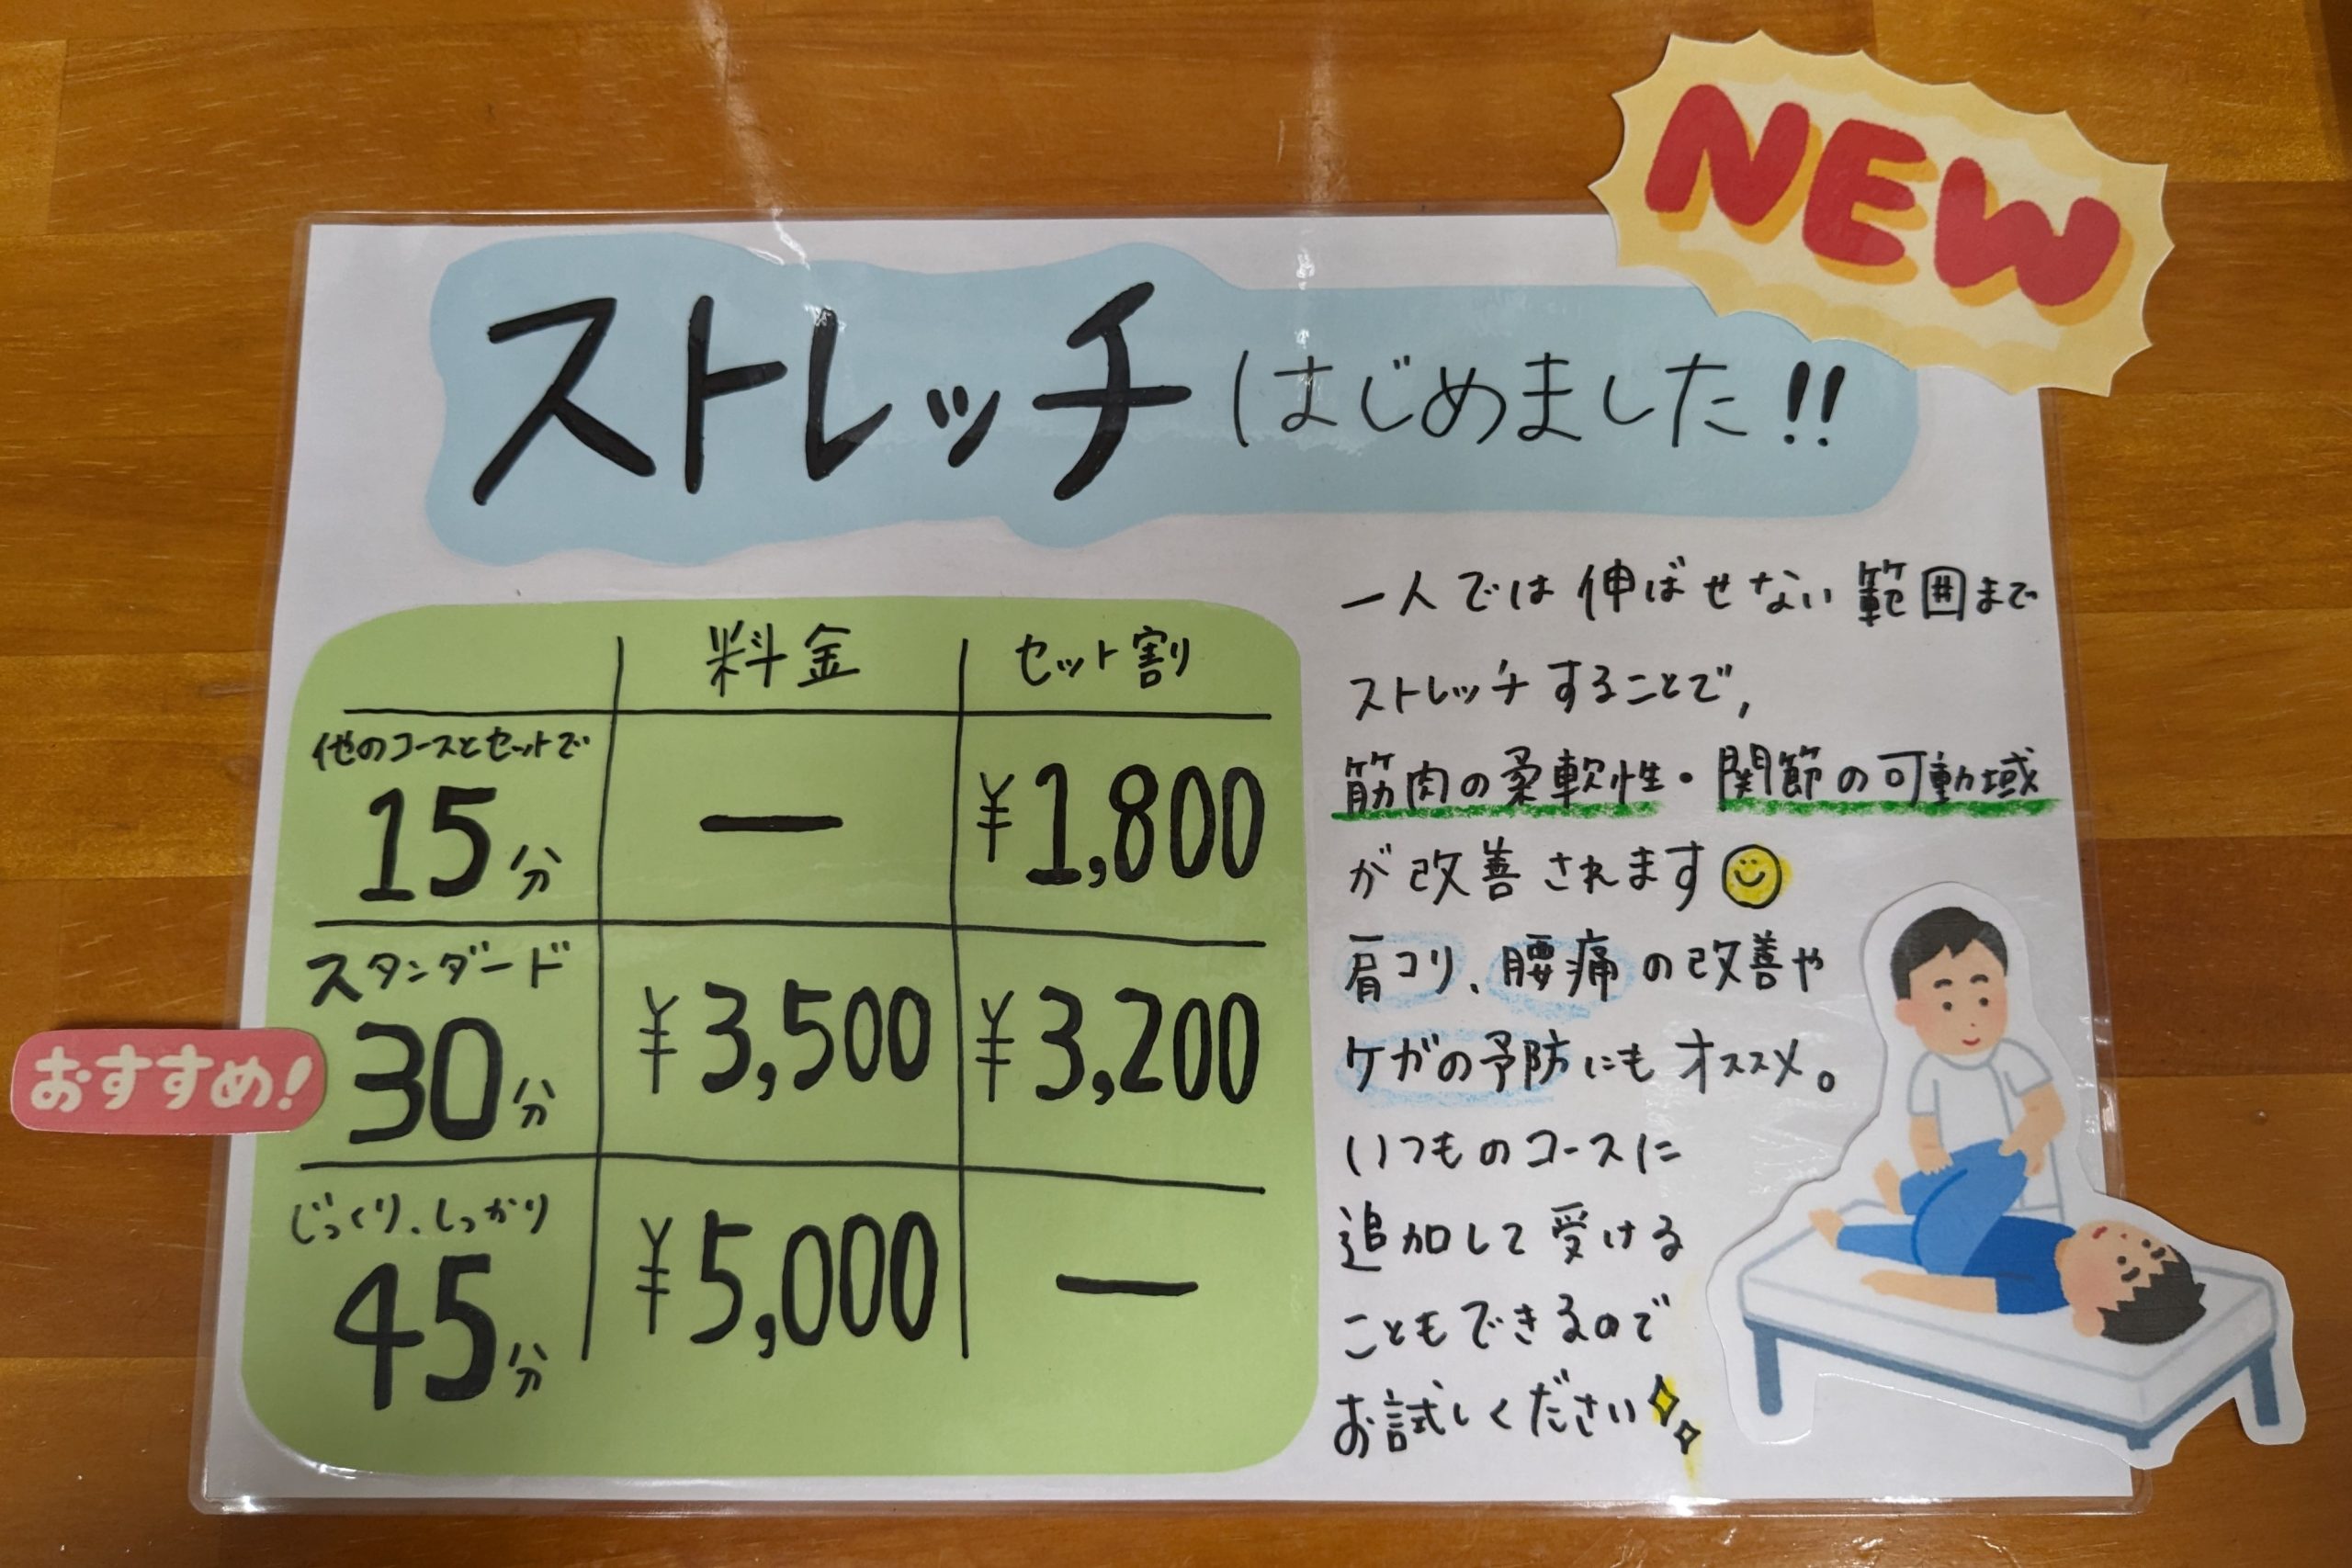 NEW
ストレッチはじめました!!
料金 セット割
他のコースとセットで
15分 ー ¥1,800
スタンダード
おすすめ! 30分 ¥3,500 ¥3,200
じっくり、しっかり
45分 ¥5,000 ー
一人では伸ばせない範囲まで
ストレッチすることで,
筋肉の柔軟性・関節の可動域
が改善されます
肩コリ、腰痛の改善や
ケガの予防にもオススメ。
いつものコースに
追加して受ける
こともできるので
お試しください